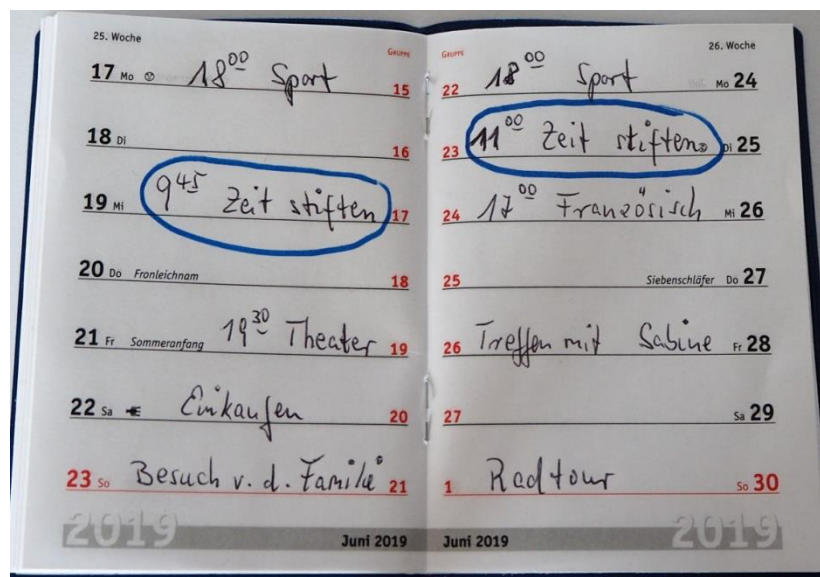 25. Woche
GRUPPE
17 Mo 18⁰⁰ Sport 15
18 Di 16
19 Mi 9⁴⁵ Zeit stiften 17
20 Do Fronleichnam 18
21 Fr Sommeranfang 19³⁰ Theater 19
22 Sa Einkaufen 20
23 So Besuch v. d. Familie 21
2019
Juni 2019
26. Woche
GRUPPE
22 18⁰⁰ Sport Mo 24
23 11⁰⁰ Zeit stiften Di 25
24 17⁰⁰ Französisch Mi 26
25 Siebenschläfer Do 27
26 Treffen mit Sabine Fr 28
27 Sa 29
1 Radtour So 30
Juni 2019
2019